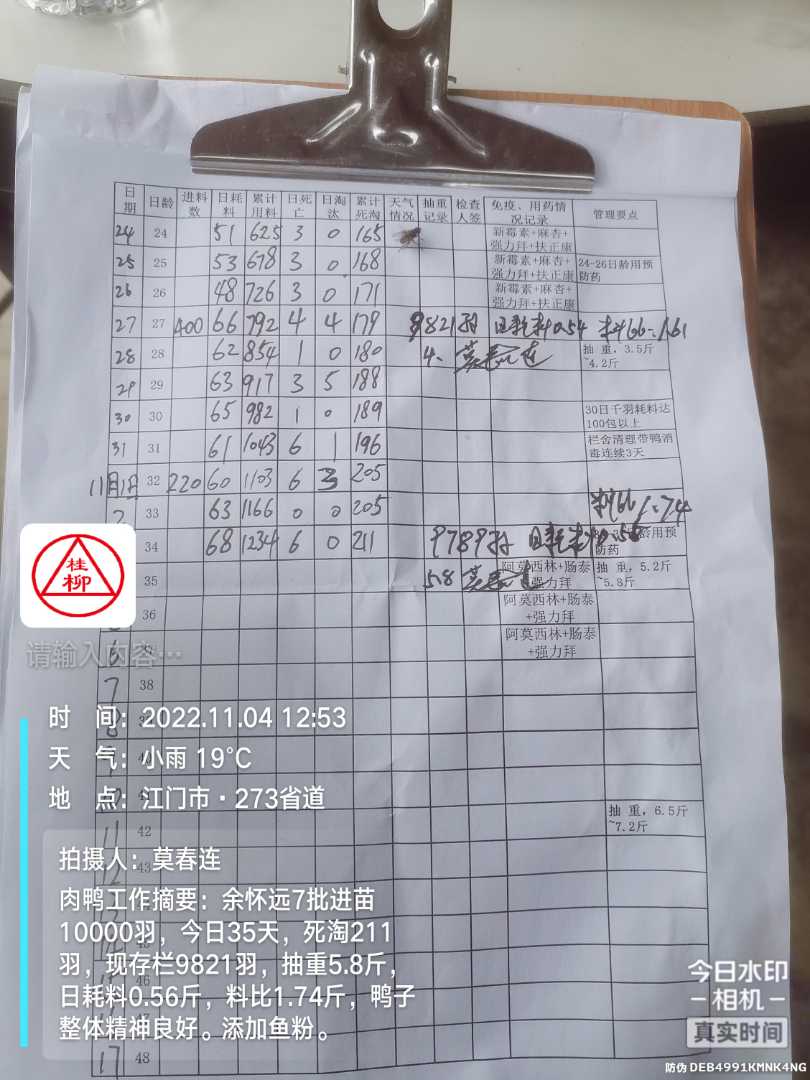 日期 日龄 进料数 日耗料 累计用料 日死亡 日淘汰 累计死淘 天气情况 抽重记录 检查人签 免疫、用药情况记录 管理要点
24 24 51 625 3 0 165 新霉素+麻杏+强力拜+扶正康
25 25 53 678 3 0 168 新霉素+麻杏+强力拜+扶正康 24-26日龄用预防药
26 26 48 726 3 0 171 新霉素+麻杏+强力拜+扶正康
27 27 400 66 792 4 4 179 9821羽 日耗料0.54 料比:1.61
28 28 62 854 1 0 180 4. 莫春连 抽重,3.5斤~4.2斤
29 29 63 917 3 5 188
30 30 65 982 1 0 189 30日千羽耗料达100包以上
31 31 61 1043 6 1 196 栏舍清理带鸭消毒连续3天
11月1日 32 220 60 1103 6 3 205
2 33 63 1166 0 0 205 料比1.74
34 68 1234 6 0 211 9789羽 日耗料0.56 日龄用预防药
35 5.8 莫春连 阿莫西林+肠泰+强力拜 抽重,5.2斤~5.8斤
36 阿莫西林+肠泰+强力拜
6 37 阿莫西林+肠泰+强力拜
7 38
11 42 抽重,6.5斤~7.2斤
12
17 48
桂柳
请输入内容…
时 间:2022.11.04 12:53
天 气:小雨 19°C
地 点:江门市·273省道
拍摄人:莫春连
肉鸭工作摘要:余怀远7批进苗
10000羽,今日35天,死淘211
羽,现存栏9821羽,抽重5.8斤,
日耗料0.56斤,料比1.74斤,鸭子
整体精神良好。添加鱼粉。
今日水印
-相机-
真实时间
防伪 DEB4991KMNK4NG